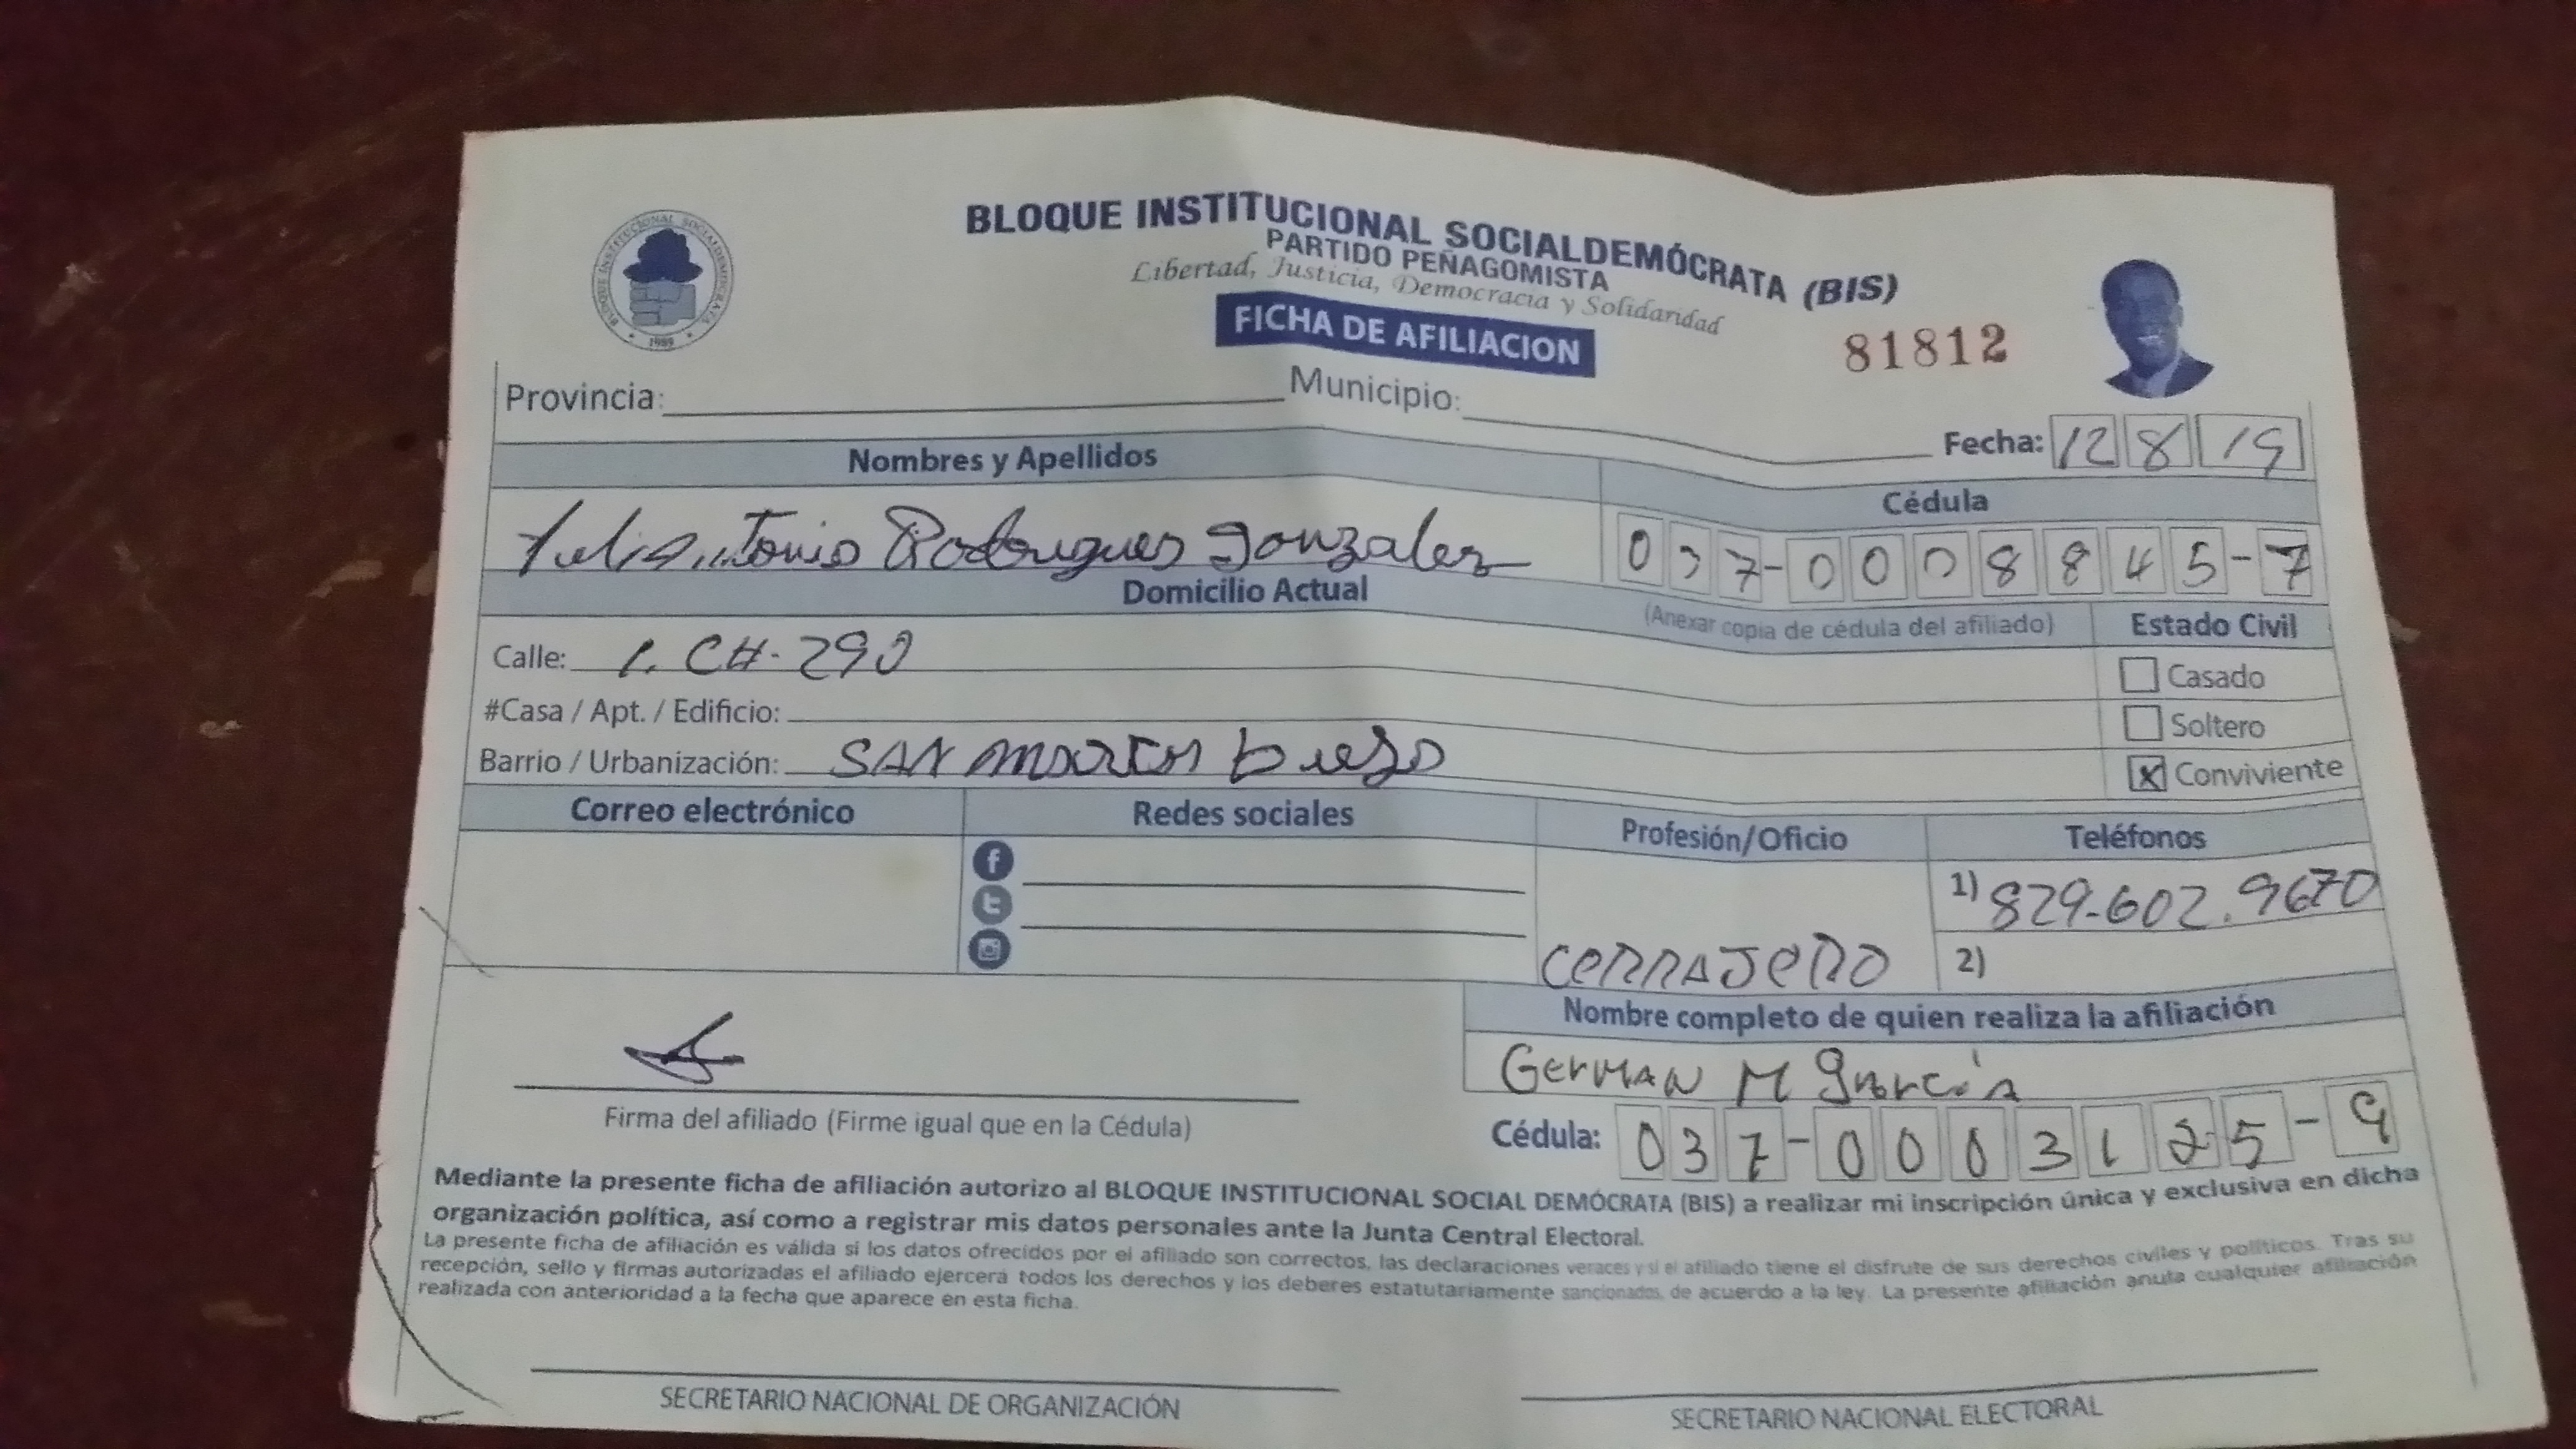 BLOQUE INSTITUCIONAL SOCIALDEMÓCRATA (BIS)
PARTIDO PEÑAGOMISTA
Libertad, Justicia, Democracia y Solidaridad
FICHA DE AFILIACION
81812
BLOQUE INSTITUCIONAL SOCIALDEMOCRATA
1989
Provincia: Municipio:
Fecha: 12 8 19
Nombres y Apellidos
Cédula
Rodrigues Gonzalez
037-0008845-7
Domicilio Actual
(Anexar copia de cédula del afiliado)
Estado Civil
Calle: 1. CH-290
Casado
#Casa / Apt. / Edificio:
Soltero
Barrio / Urbanización: SAN
X Conviviente
Correo electrónico
Redes sociales
Profesión/Oficio
Teléfonos
f
t
1) 829-602.9670
CERRAJERO
2)
Nombre completo de quien realiza la afiliación
GERMAN M García
Firma del afiliado (Firme igual que en la Cédula)
Cédula: 037-0003125-9
Mediante la presente ficha de afiliación autorizo al BLOQUE INSTITUCIONAL SOCIAL DEMÓCRATA (BIS) a realizar mi inscripción única y exclusiva en dicha
organización política, así como a registrar mis datos personales ante la Junta Central Electoral.
La presente ficha de afiliación es válida si los datos ofrecidos por el afiliado son correctos, las declaraciones veraces y si el afiliado tiene el disfrute de sus derechos civiles y políticos. Tras su
recepción, sello y firmas autorizadas el afiliado ejercerá todos los derechos y los deberes estatutariamente sancionados, de acuerdo a la ley. La presente afiliación anula cualquier afiliación
realizada con anterioridad a la fecha que aparece en esta ficha.
SECRETARIO NACIONAL DE ORGANIZACIÓN
SECRETARIO NACIONAL ELECTORAL